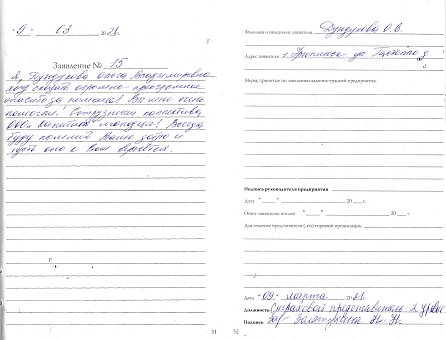 "9" 03 2021.
Заявление № 15
Я, Дундукова Ольга Владимировна
хочу сказать огромно-преогромное
спасибо за помощь! Вы мне очень
помогли! Сотрудники коллектива
ООО " Капитал молодцы! Всегда
буду помнить Ваше добро и
пусть оно к Вам вернётся.
31
Фамилия и инициалы заявителя Дундукова О.В.
Адрес заявителя г.
Меры, принятые по заявлению администрацией предприятия:
Подпись руководителя предприятия
Дата " " 20 г.
Ответ заявителю послан " " 20 г.
Для отметок представителя (-ей) торговой организации
Дата "09" марта 2021.
Должность Страховой представитель 2 уровня
Подпись Н. Н.
32